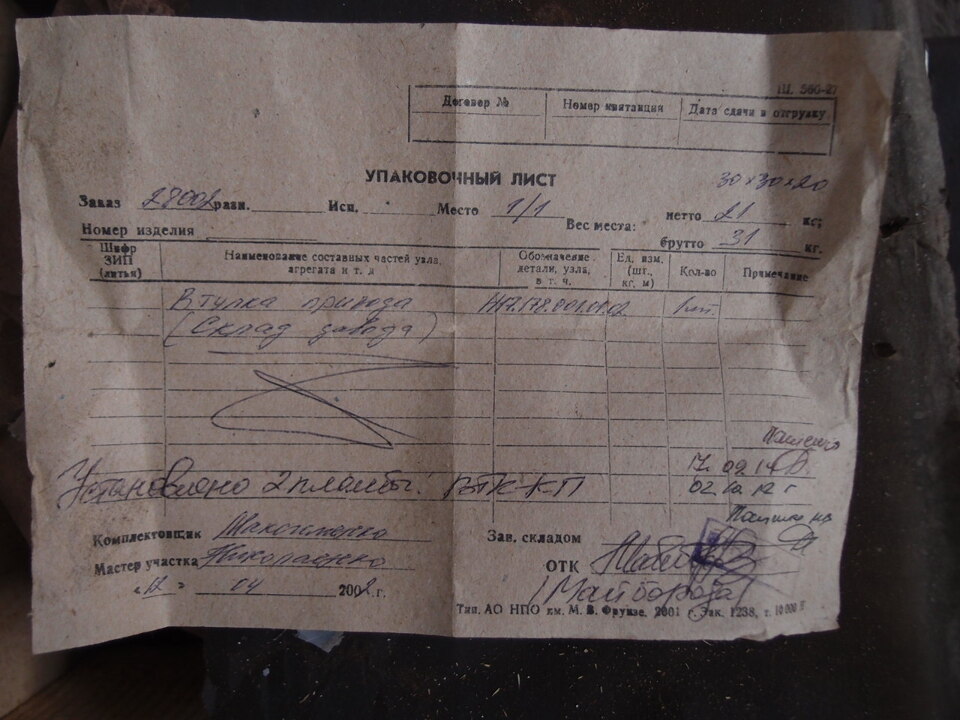 Ш. 360-27
Договор № Номер квитанции Дата сдачи в отгрузку
УПАКОВОЧНЫЙ ЛИСТ
30×30×20
Заказ 28002 разн. Исп. Место 1/1 Вес места: нетто 21 кг;
Номер изделия брутто 31 кг.
Шифр ЗИП (литья) Наименование составных частей узла, агрегата и т. д Обозначение детали, узла, в т. ч. Ед. изм. (шт., кг, м) Кол-во Примечание
Втулка привода 1шт.
(Склад завода)
17.02.14
Установлено 2 пломбы! БТК-КП 02.10.12 г
Комплектовщик
Зав. складом
Мастер участка Николаенко
ОТК
(Майборода)
«12» 04 2002 г.
Тип. АО НПО им. М. В. Фрунзе. 2001 г. Зак. 1238, т. 10 000